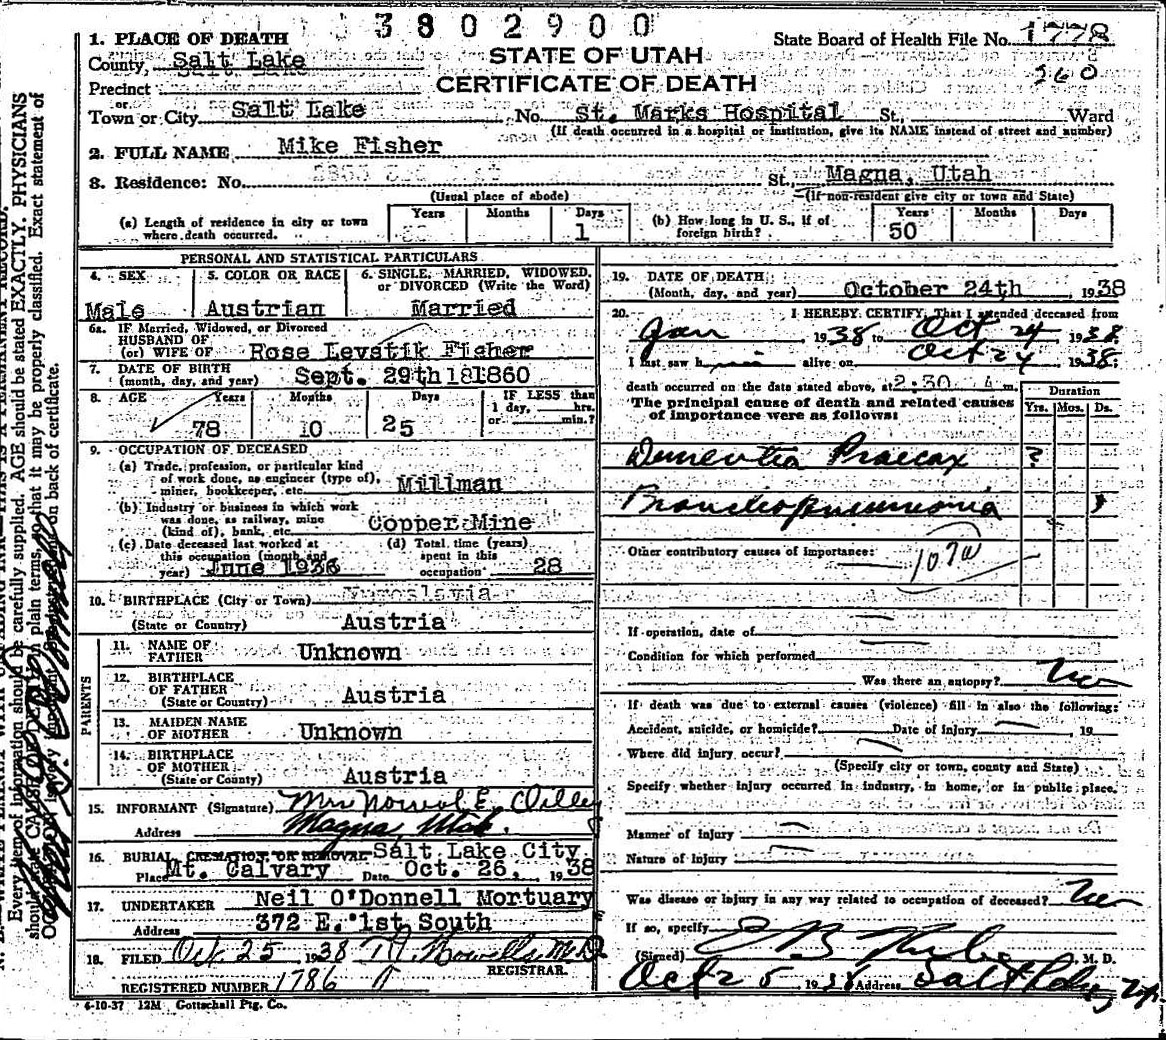 3802900
1. PLACE OF DEATH
STATE OF UTAH
State Board of Health File No. 1778
County, Salt Lake
CERTIFICATE OF DEATH
260
Precinct
or
Town or City Salt Lake No. St. Marks Hospital St., Ward
(If death occurred in a hospital or institution, give its NAME instead of street and number)
2. FULL NAME Mike Fisher
3. Residence: No. St., Magna, Utah
(Usual place of abode) (If non-resident give city or town and State)
(a) Length of residence in city or town where death occurred. Years Months Days 1
(b) How long in U. S., if of foreign birth? Years 50 Months Days
PERSONAL AND STATISTICAL PARTICULARS
4. SEX Male
5. COLOR OR RACE Austrian
6. SINGLE, MARRIED, WIDOWED, or DIVORCED (Write the Word) Married
6a. IF Married, Widowed, or Divorced
HUSBAND OF
(or) WIFE OF Rose Levstik Fisher
7. DATE OF BIRTH
(month, day, and year) Sept. 29th 1860
8. AGE Years 78 Months 10 Days 25 IF LESS than 1 day, hrs. or min.?
9. OCCUPATION OF DECEASED
(a) Trade, profession, or particular kind
of work done, as engineer (type of),
miner, bookkeeper, etc. Millman
(b) Industry or business in which work
was done, as railway, mine
(kind of), bank, etc. Copper Mine
(c) Date deceased last worked at
this occupation (month and
year) June 1936
(d) Total time (years)
spent in this
occupation 28
10. BIRTHPLACE (City or Town) Yugoslavia
(State or Country) Austria
PARENTS
11. NAME OF
FATHER Unknown
12. BIRTHPLACE
OF FATHER
(State or Country) Austria
13. MAIDEN NAME
OF MOTHER Unknown
14. BIRTHPLACE
OF MOTHER
(State or County) Austria
15. INFORMANT (Signature) Mrs E.
Address Magna, Utah.
16. BURIAL, CREMATION OR REMOVAL Salt Lake City
Place Mt. Calvary Date Oct. 26, 1938
17. UNDERTAKER Neil O'Donnell Mortuary
Address 372 E. 1st South
18. FILED Oct 25 1938 M.D.
REGISTRAR.
REGISTERED NUMBER 1786
4-10-37 12M Gottschall Ptg. Co.
19. DATE OF DEATH
(Month, day, and year) October 24th 1938
20. I HEREBY CERTIFY, That I attended deceased from
Jan 1938 to Oct 24 1938.
I last saw h im alive on Oct 24 1938.
death occurred on the date stated above, at 2:30 A m.
The principal cause of death and related causes
of importance were as follows:
Duration
Yrs. Mos. Ds.
Dementia Praecox ?
Bronchopneumonia
Other contributory causes of importance:
If operation, date of
Condition for which performed
Was there an autopsy? No
If death was due to external causes (violence) fill in also the following:
Accident, suicide, or homicide? Date of injury , 19
Where did injury occur?
(Specify city or town, county and State)
Specify whether injury occurred in industry, in home, or in public place.
Manner of Injury
Nature of Injury
Was disease or injury in any way related to occupation of deceased? No
If so, specify
(Signed) M. D.
Oct 25, 1938 Address Salt Lake
Every item of information should be carefully supplied. AGE should be stated EXACTLY. PHYSICIANS
should state CAUSE OF DEATH in plain terms, that it may be properly classified. Exact statement of
on back of certificate.